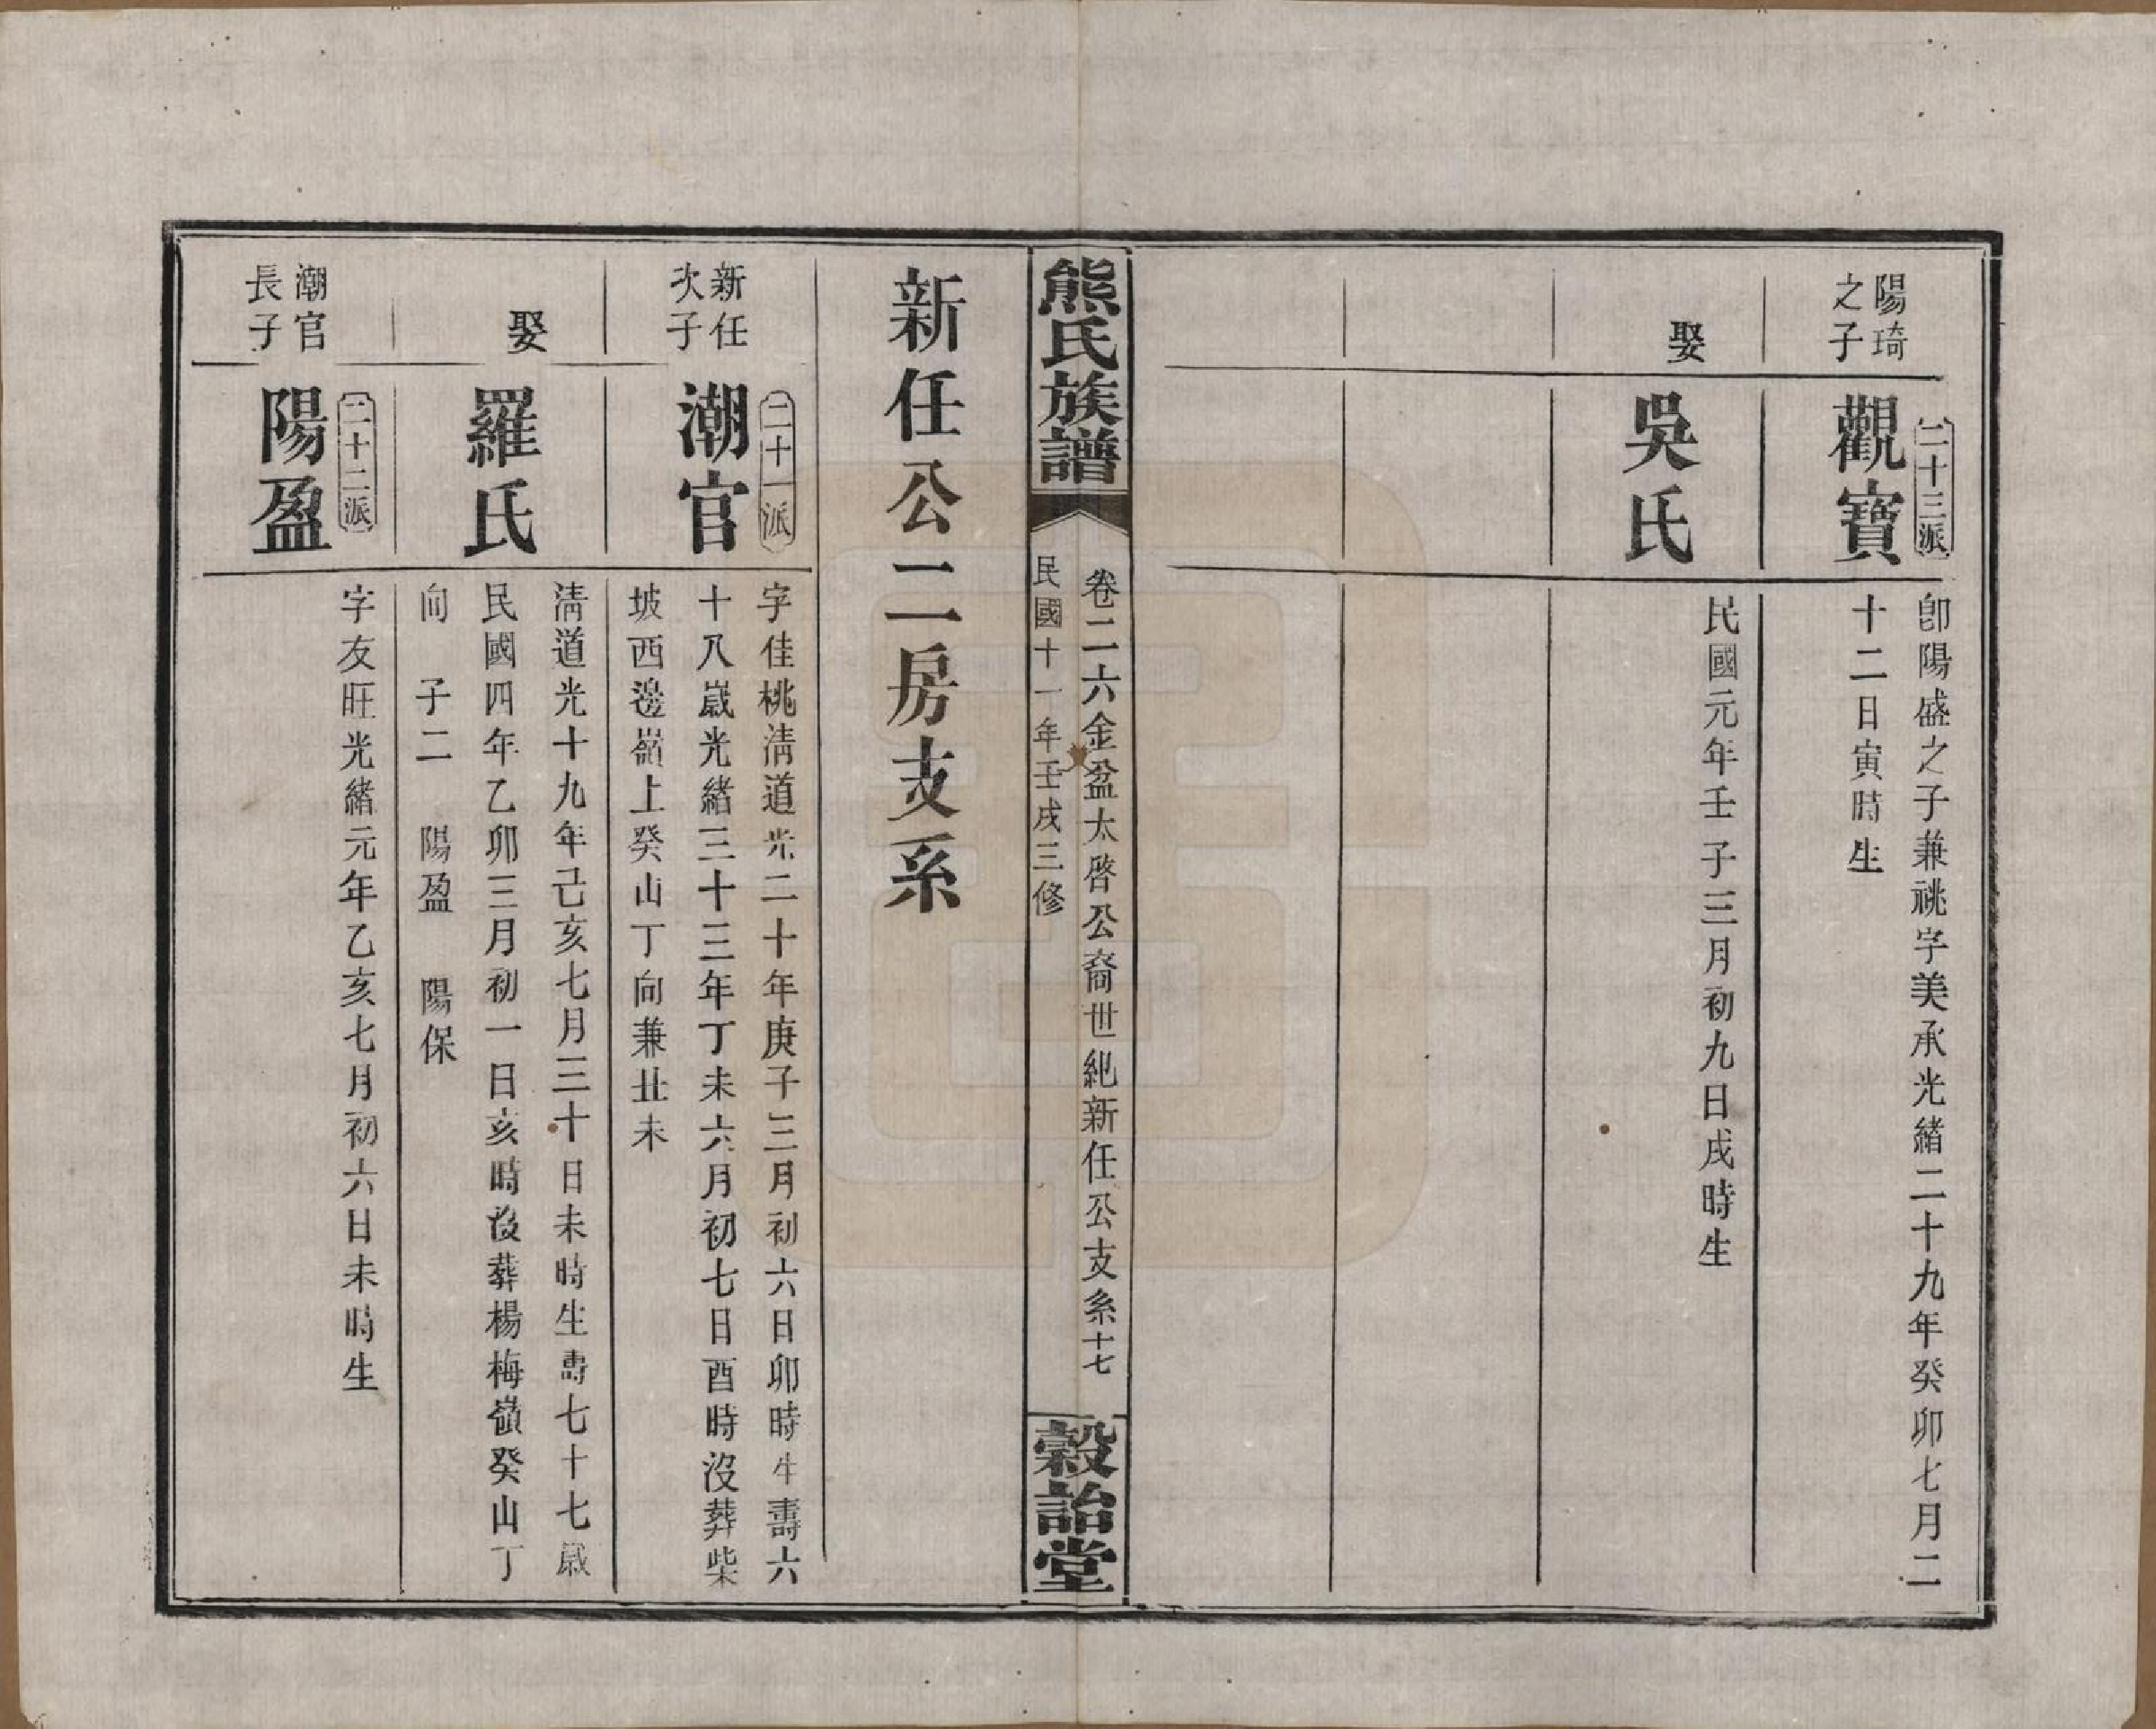 陽琦
之子
二十三派
觀寶
卽陽盛之子兼祧字美承光緒二十九年癸卯七月二
十二日寅時生
娶
吳氏
民國元年壬子三月初九日戌時生
熊氏族譜
卷二六金盆太啓公裔世紀新任公支系十七
民國十一年壬戌三修
穀詒堂
新任公二房支系
新任
次子
二十一派
潮官
字佳桃淸道光二十年庚子三月初六日卯時生壽六
十八歲光緒三十三年丁未六月初七日酉時沒葬柴
坡西邊嶺上癸山丁向兼丑未
娶
羅氏
淸道光十九年己亥七月三十日未時生壽七十七歲
民國四年乙卯三月初一日亥時沒葬楊梅嶺癸山丁
向 子二 陽盈 陽保
潮官
長子
二十二派
陽盈
字友旺光緒元年乙亥七月初六日未時生